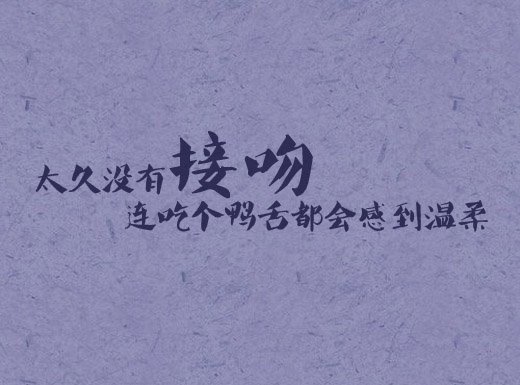 太久没有接吻
连吃个鸭舌都会感到温柔